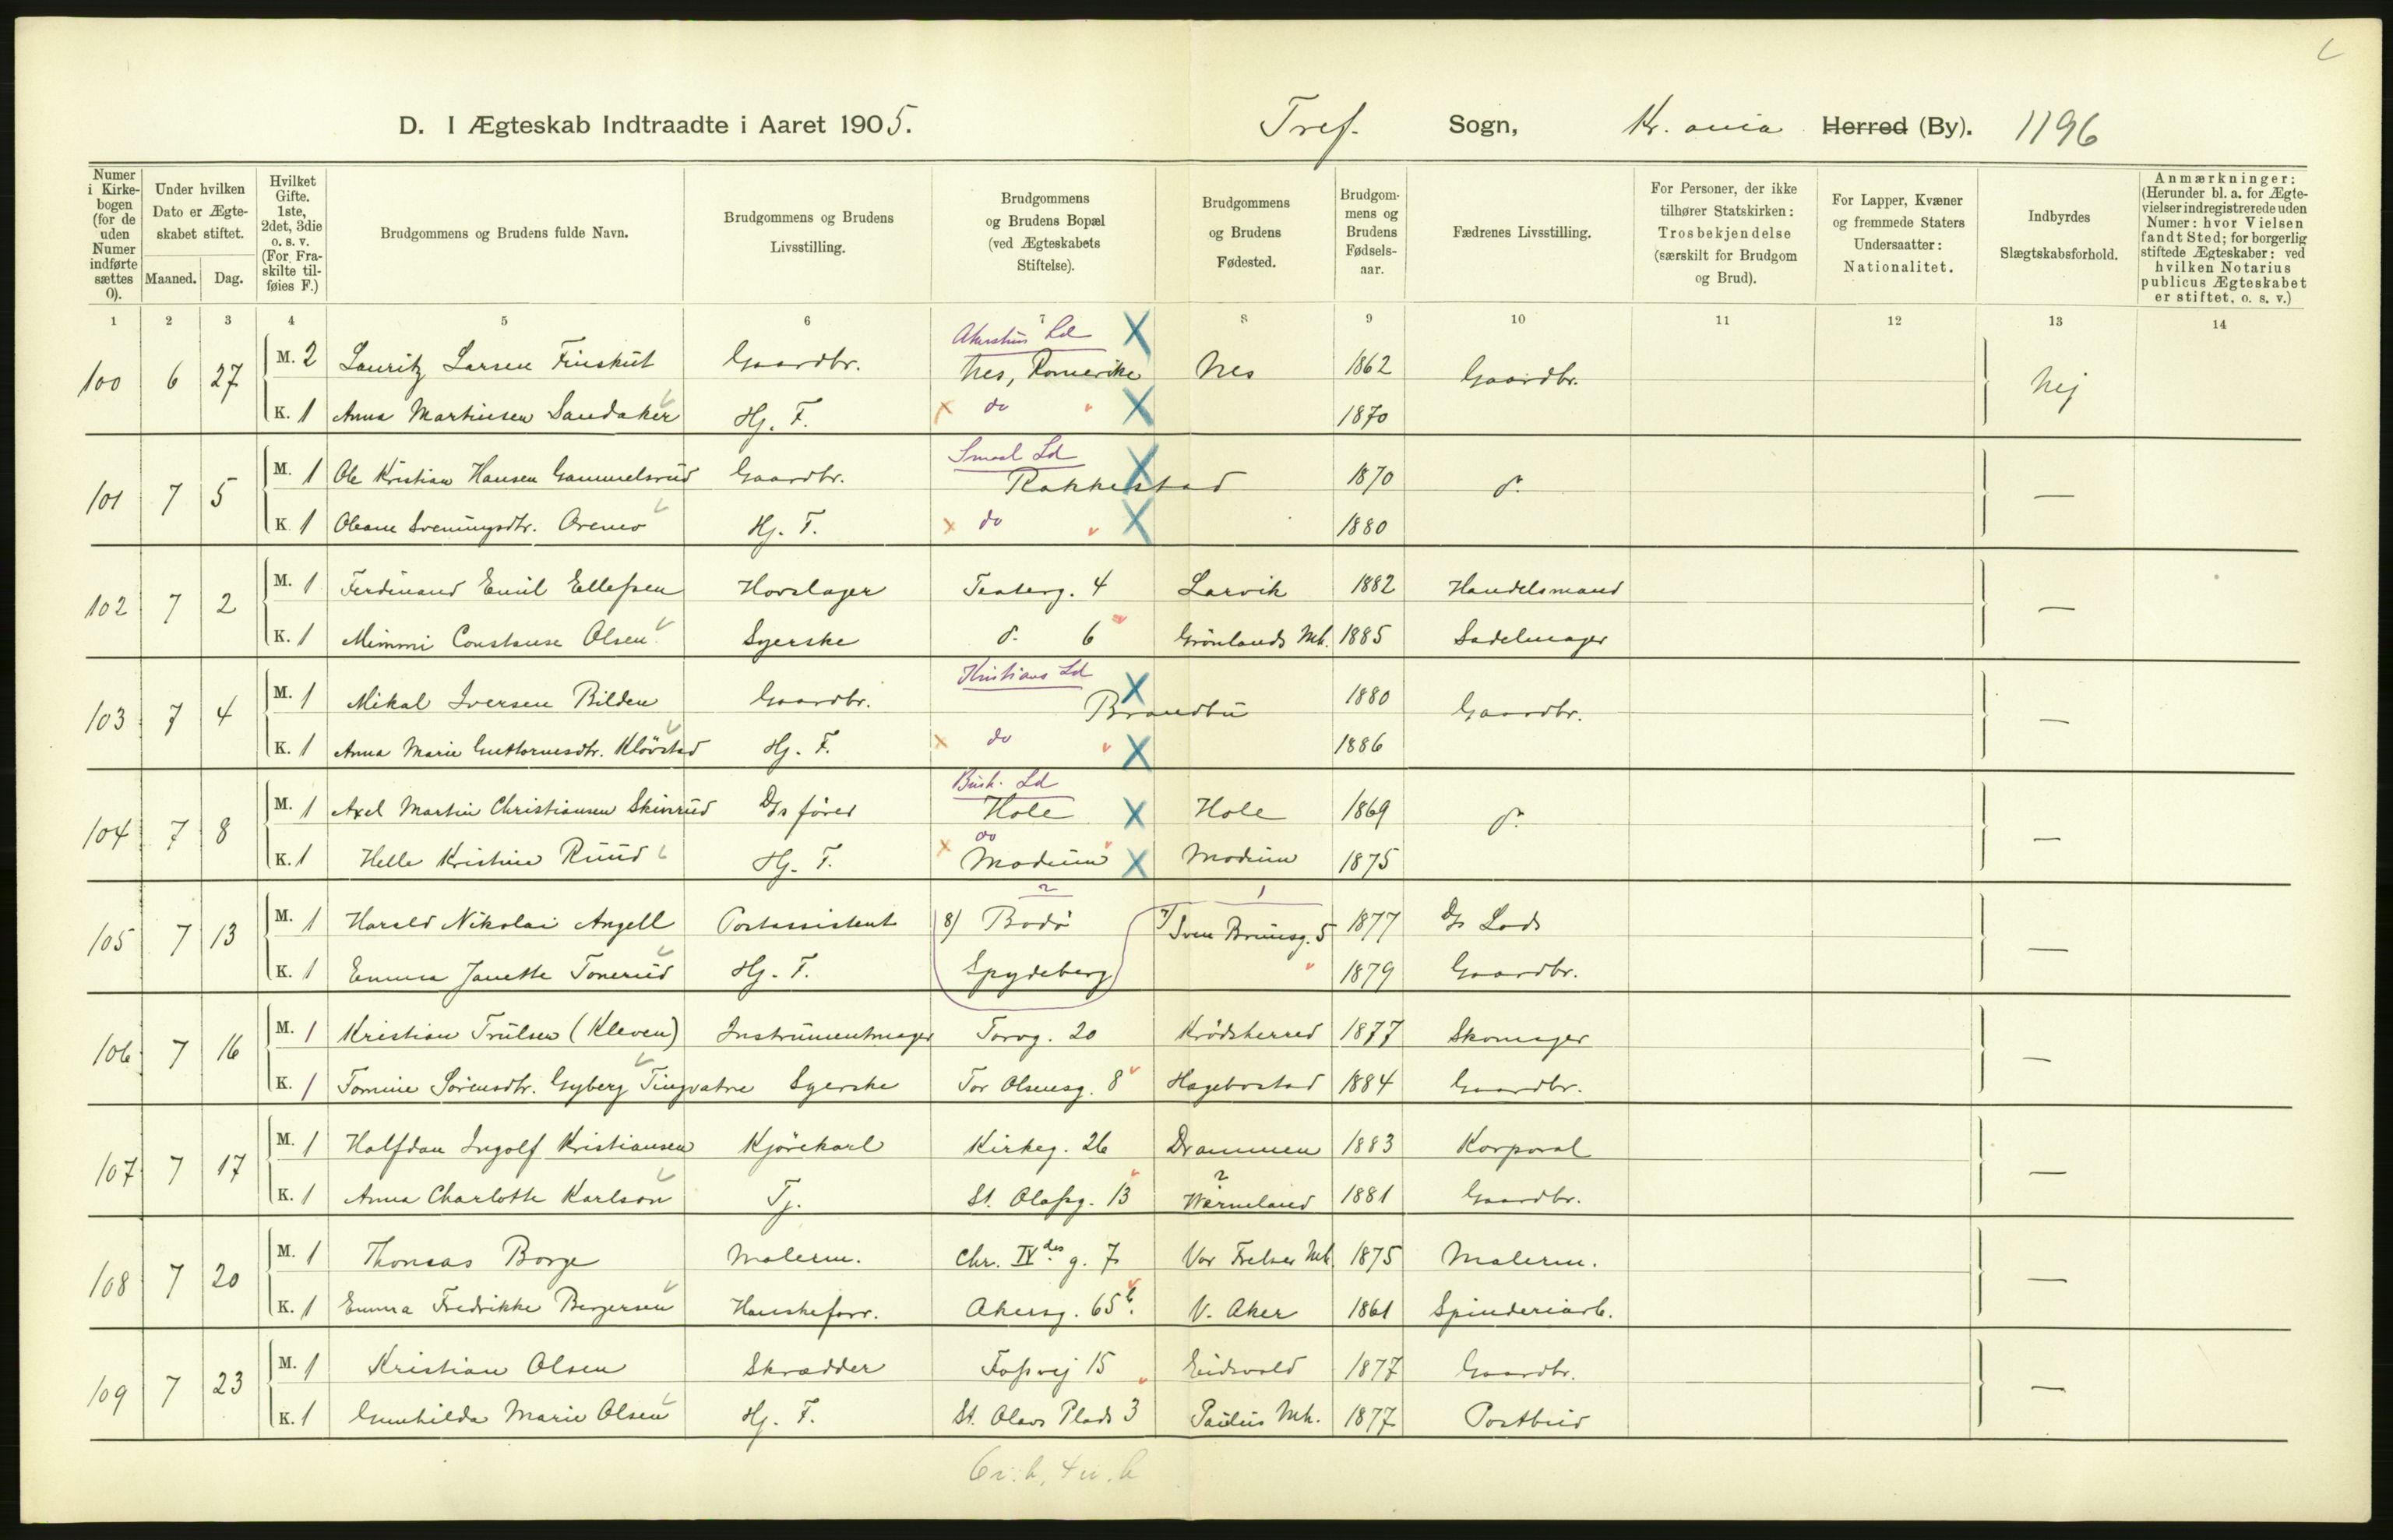 D. I Ægteskab Indtraadte i Aaret 1905. Tref. Sogn, Kr.ania Herred (By). 1196
Numer i Kirkebogen (for de uden Numer indførte sættes 0).
Under hvilken Dato er Ægteskabet stiftet.
Maaned. Dag.
Hvilket Gifte. 1ste, 2det, 3die o. s. v. (For Fraskilte tilføies F.)
Brudgommens og Brudens fulde Navn.
Brudgommens og Brudens Livsstilling.
Brudgommens og Brudens Bopæl (ved Ægteskabets Stiftelse).
Brudgommens og Brudens Fødested.
Brudgommens og Brudens Fødselsaar.
Fædrenes Livsstilling.
For Personer, der ikke tilhører Statskirken: Trosbekjendelse (særskilt for Brudgom og Brud).
For Lapper, Kvæner og fremmede Staters Undersaatter: Nationalitet.
Indbyrdes Slægtskabsforhold.
Anmærkninger: (Herunder bl. a. for Ægtevielser indregistrerede uden Numer: hvor Vielsen fandt Sted; for borgerlig stiftede Ægteskaber: ved hvilken Notarius publicus Ægteskabet er stiftet, o. s. v.)
1 2 3 4 5 6 7 8 9 10 11 12 13 14
Akershus Ld X
100 6 27 M. 2 Lauritz Larsen Finskut Gaardbr. Nes, Romerike Nes 1862 Gaardbr. Nej
K. 1 Anna Martinsen Sandaker Hj. F. do X 1870
Smaal Ld X
101 7 5 M. 1 Ole Kristian Hansen Gammelsrud Gaardbr. Rakkestad 1870 d. —
K. 1 Oleane Sveningsdtr. Hj. F. do X 1880
102 7 2 M. 1 Ferdinand Emil Ellefsen Hovslager Teaterg. 4 Larvik 1882 Handelsmand —
K. 1 Mimmi Constanse Olsen Syerske d. 6 Grønlands Mh. 1885 Sadelmager
Kristians Ld X
103 7 4 M. 1 Mikal Iversen Bilden Gaardbr. Brandbu 1880 Gaardbr. —
K. 1 Anna Marie Guttormsdtr. Kløvstad Hj. F. do X 1886
Busk. Ld
104 7 8 M. 1 Axel Martin Christiansen Skinrud Dsfører Hole X Hole 1869 d. —
do
K. 1 Helle Kristine Ruud Hj. F. Modum X Modum 1875
2 1
105 7 13 M. 1 Harald Nikolai Angell Postassistent 8) Bodø 7) Sven Brunsg. 5 1877 Ds Lods —
K. 1 Emma Janette Tonerud Hj. F. Spydeberg 1879 Gaardbr.
106 7 16 M. 1 Kristian Trulsen (Kleven) Instrumentmager Torvg. 20 Krødsherred 1877 Skomager —
K. 1 Tomine Sørensdtr. Gyberg Tingvatne Syerske Tor Olsensg. 8 Hægebostad 1884 Gaardbr.
107 7 17 M. 1 Halfdan Ingolf Kristiansen Kjørekarl Kirkeg. 26 Drammen 1883 Korporal —
2
K. 1 Anna Charlotte Karlson Tj. St. Olafsg. 13 Wärmland 1881 Gaardbr.
108 7 20 M. 1 Thomas Borge Malerm. Chr. IVdes g. 7 Vor Frelser Mh. 1875 Malerm. —
K. 1 Emma Fredrikke Bergersen Hanskeforr. Akersg. 65b. V. Aker 1861 Spinderiarb.
109 7 23 M. 1 Kristian Olsen Skrædder Fossvej 15 Eidsvold 1877 Gaardbr. —
K. 1 Gunhilda Marie Olsen Hj. F. St. Olavs Plads 3 Paulus Mh. 1877 Postbud